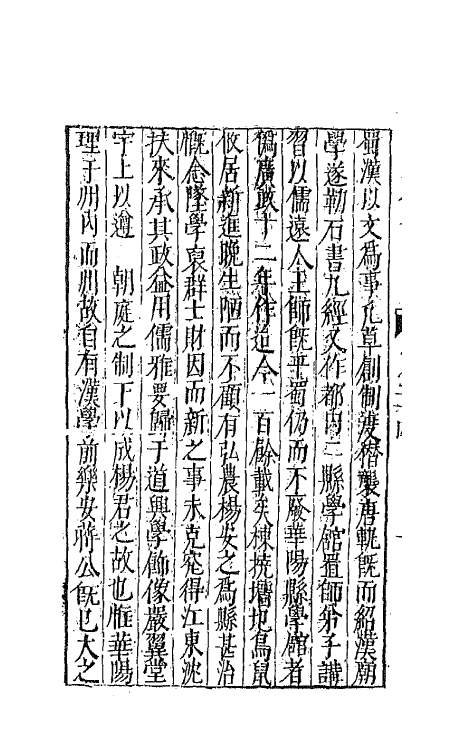 蜀漢以文爲事凡草創制度僭襲唐軌既而紹漢廟
學遂勒石書九經又作都內二縣學館置師弟子講
習以儒遠人王師既平蜀仍而不廢華陽縣學館者
僞廣政十二年作迄今一百餘載矣棟撓墻圮鳥鼠
攸居新進晚生陋而不顧有弘農楊安之爲縣甚治
慨念墜學裒群士財因而新之事未克究得江東沈
扶來承其政益用儒雅要歸于道興學飾像嚴翼堂
宇上以遵 朝庭之制下以成楊君之故也惟華陽
理于州內而州故自有漢學前樂安蔣公既已大之